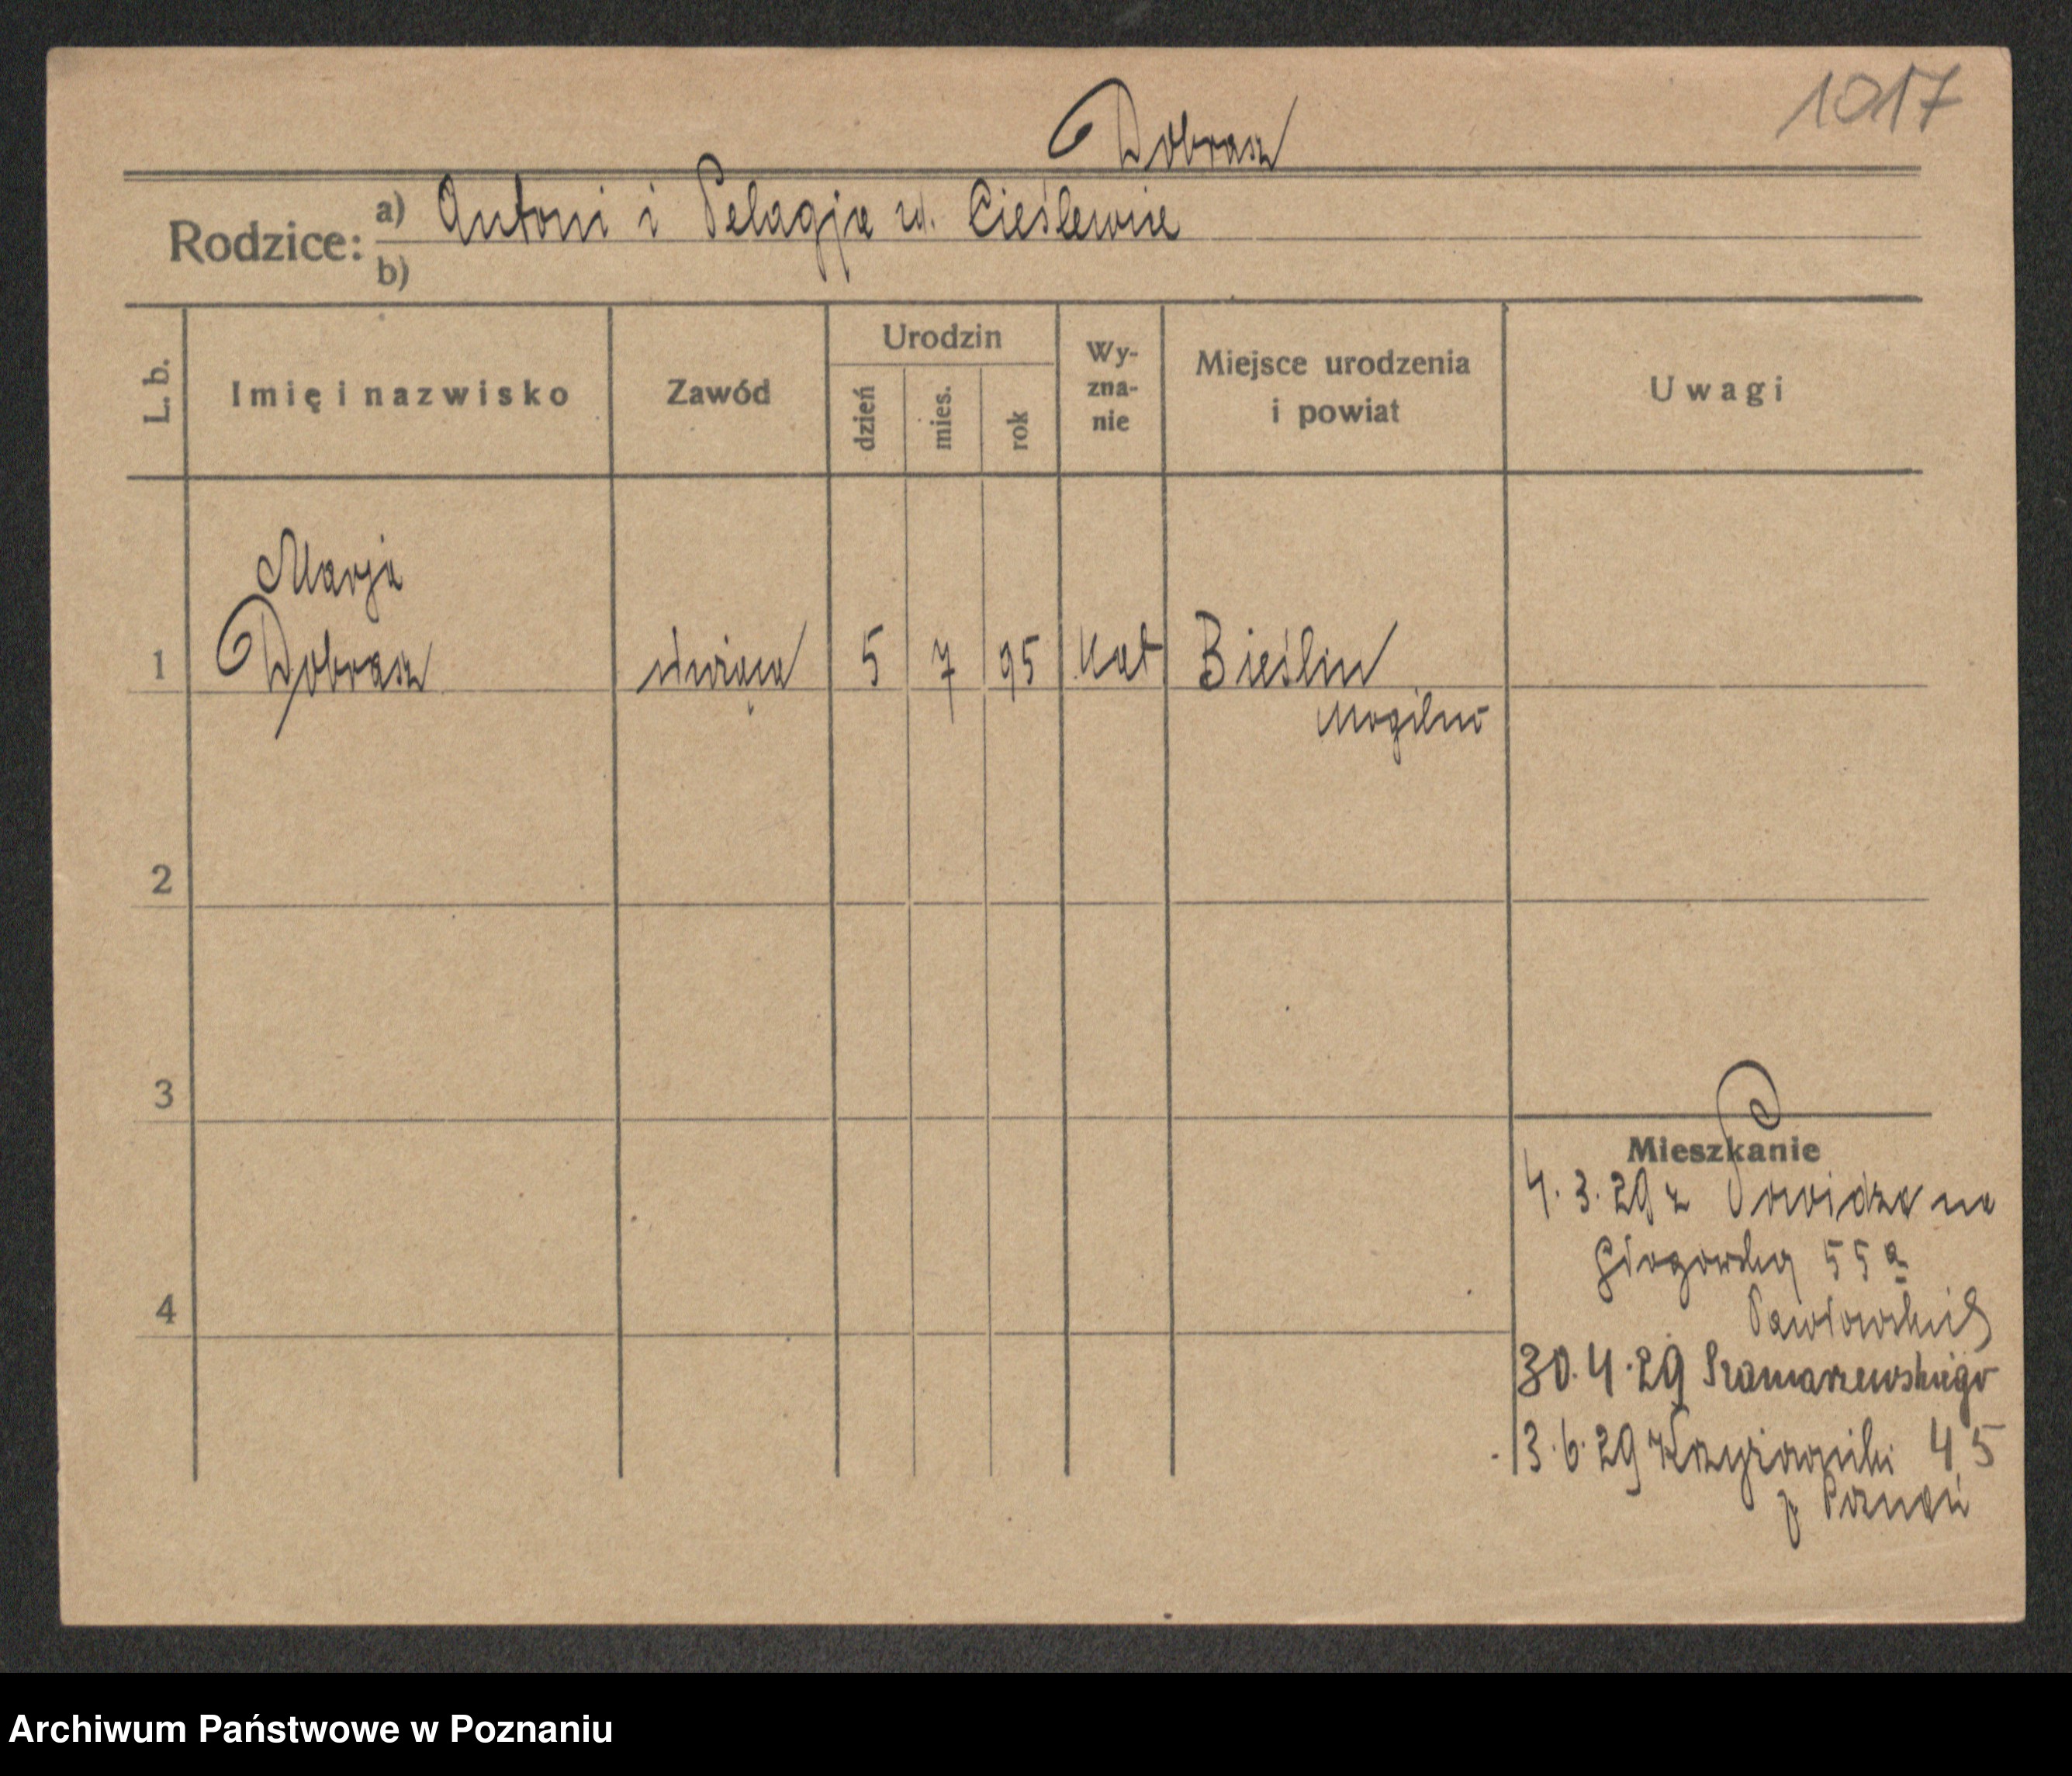 1017
Dobrasz
Rodzice: a) Antoni i Pelagja
b)
L. b.
Imię i nazwisko
Zawód
Urodzin
dzień
mies.
rok
Wy-
zna-
nie
Miejsce urodzenia
i powiat
Uwagi
Marja
1 Dobrasz służąca 5 7 95 kat Bieślin
Mogilno
2
3
4
Mieszkanie
4.3.29 z Powidza na
Głogowska 55a
30.4.29 Szamarzewskiego
3.6.29 Krzyżowniki 45
p Poznań
Archiwum Państwowe w Poznaniu